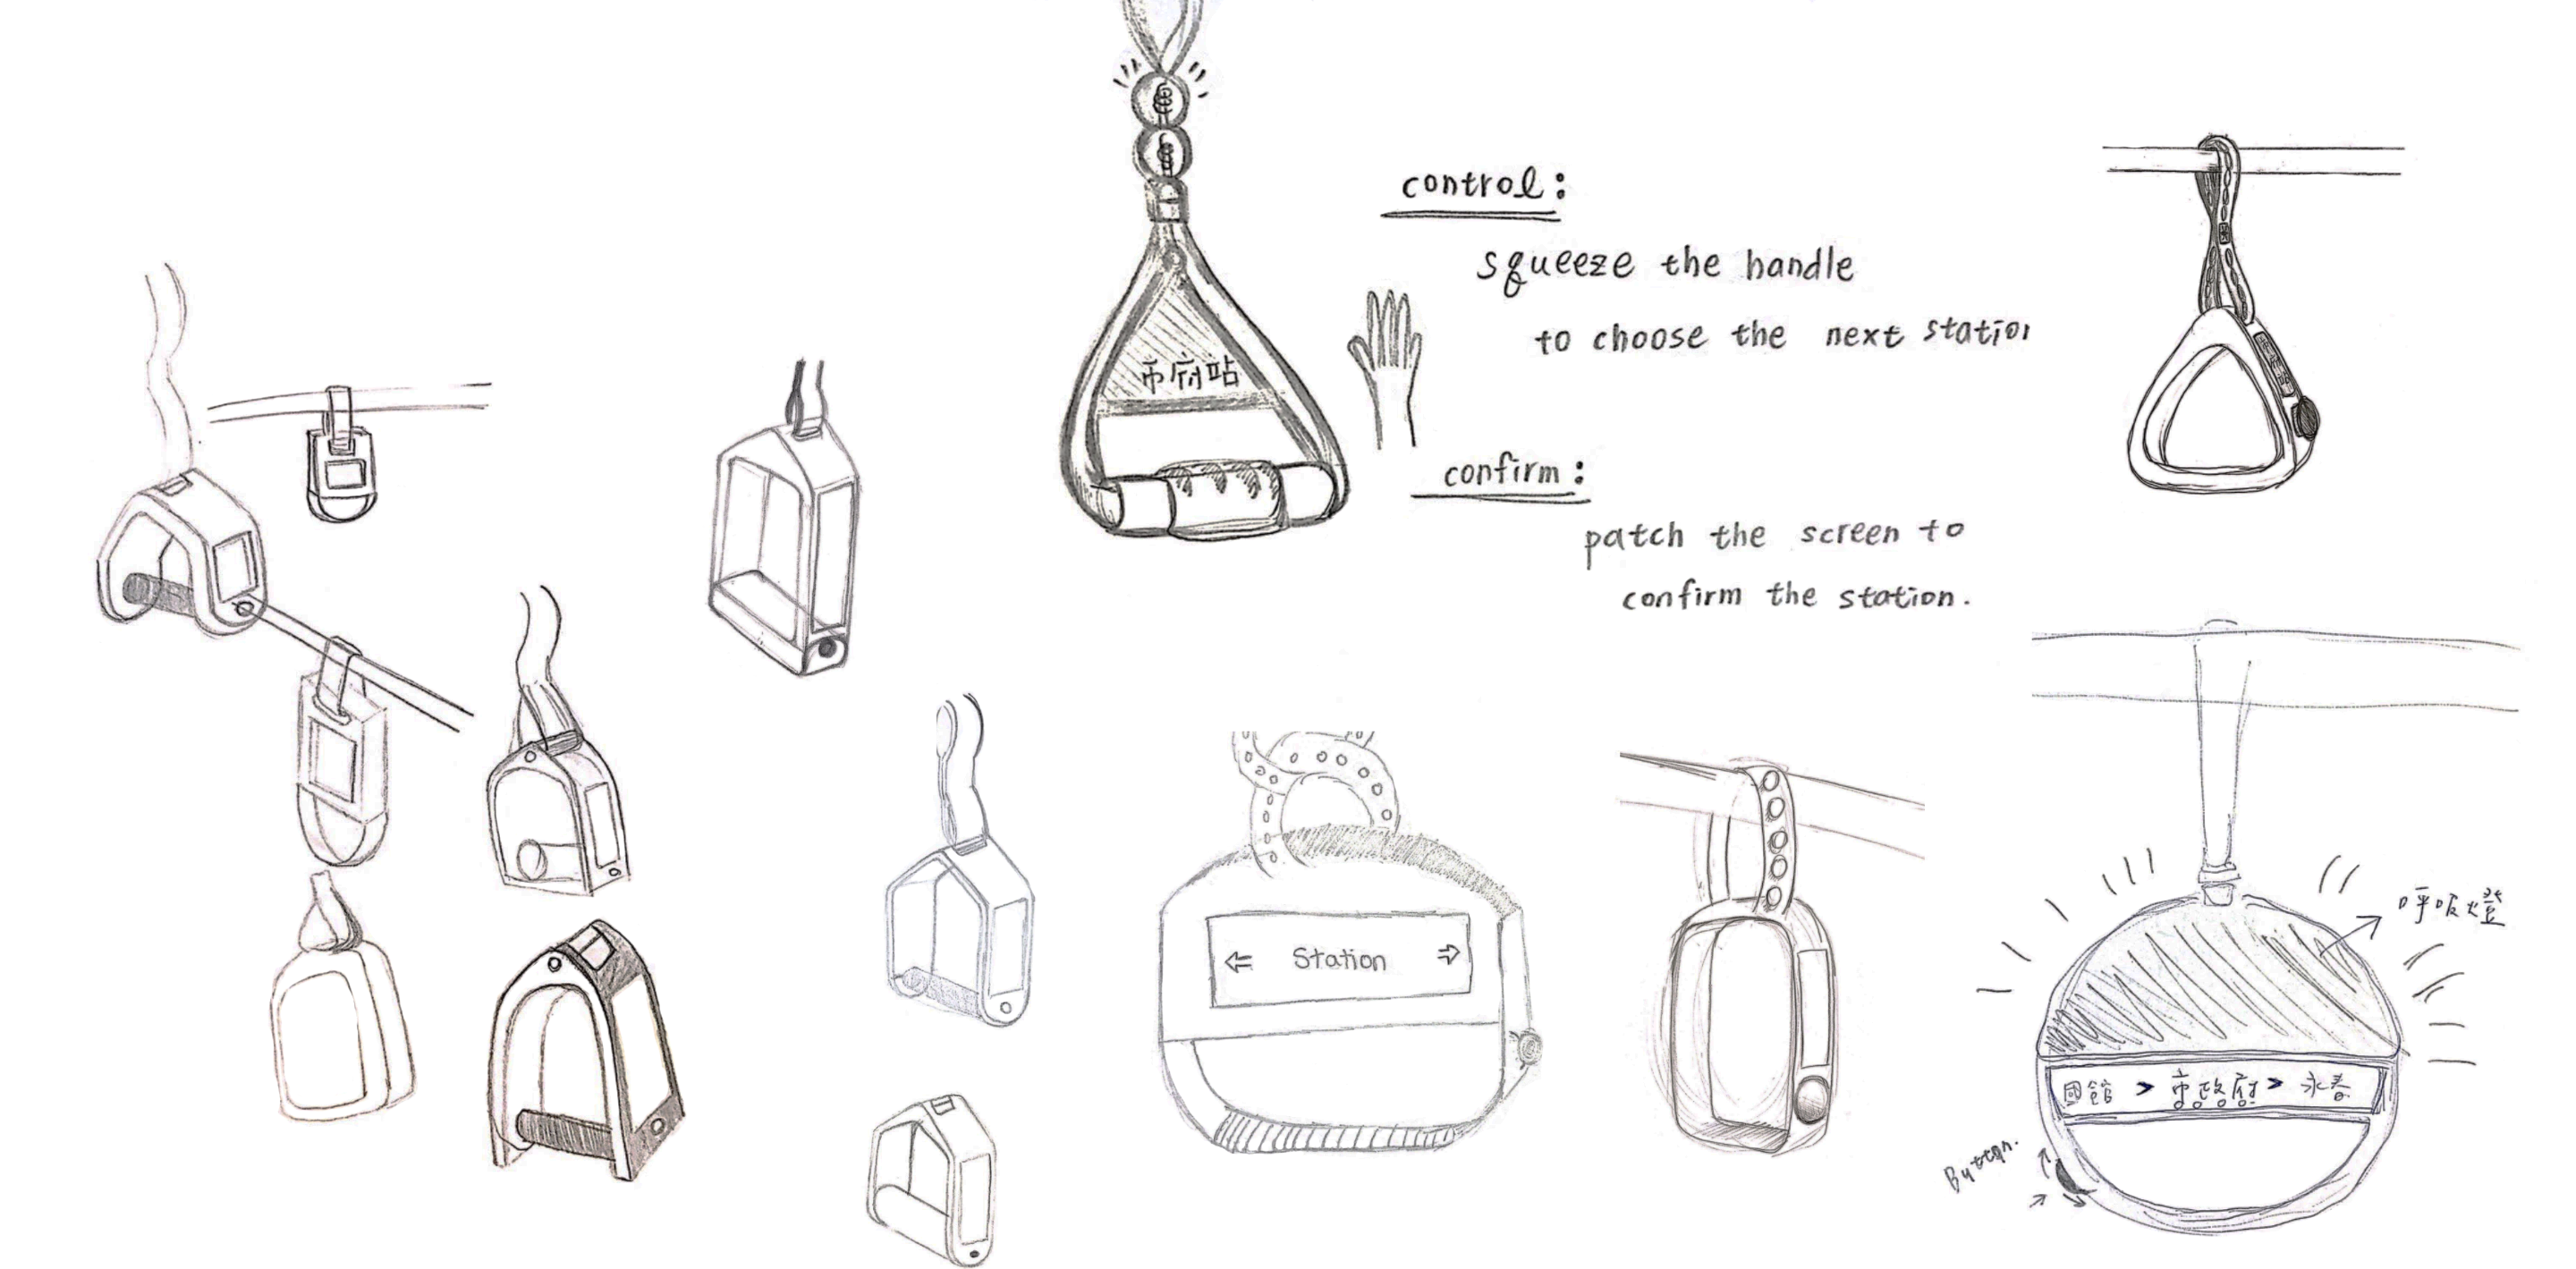 control:
squeeze the handle
to choose the next station
市府站
confirm:
patch the screen to
confirm the station.
← Station →
呼吸燈
國館 > 市政府 > 永春
Button.